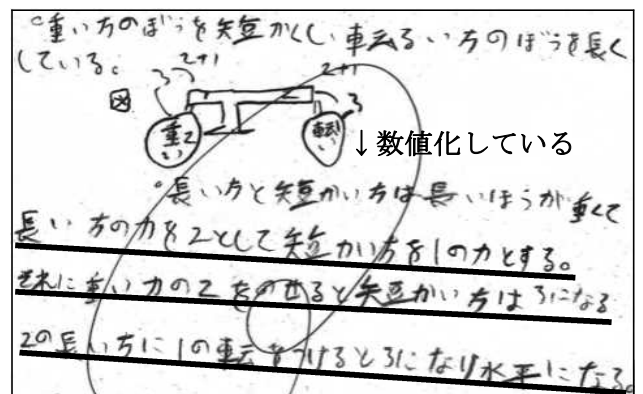 °重い方のぼうを短かくし、軽るい方のぼうを長く
している。
2+1 2+1
3 3
図 重い 2 軽い
↓数値化している
°長い方と短かい方は長いほうが重くて
長い方の力を2として短かい方を1の力とする。
それに重い力の2をのせると短かい方は3になる
2の長い方に1の軽をつけると3になり水平になる。